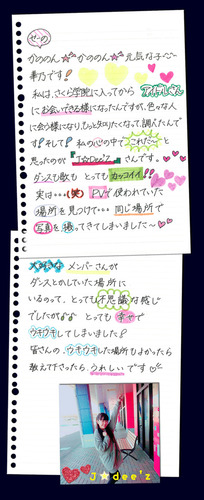 ぜーの
かののん☆かのん☆元気な子〜
華乃です！
私は、さくら学院に入ってから アイドルさん
にお会いできる様になったんですが、色々な人
に会う様になり、もっと知りたくなって、調べたんで
す！そして！私の心の中でこれだ〜っと
思ったのが『J☆Dee'Z』さんです。
ダンスも歌もとってもカッコイイ!!
実は…(笑) PVで使われていた
場所を見つけて…同じ場所で
写真を撮ってきてしまいました〜♡
大好きなメンバーさんが
ダンスとかしていた場所に
いるのって、とっても不思議な感じ
でしたがとっても幸せで
ウキウキしてしまいました！
皆さんの、ウキウキした場所もよかったら
教えて下さったら、うれしいです♡
J☆dee'z